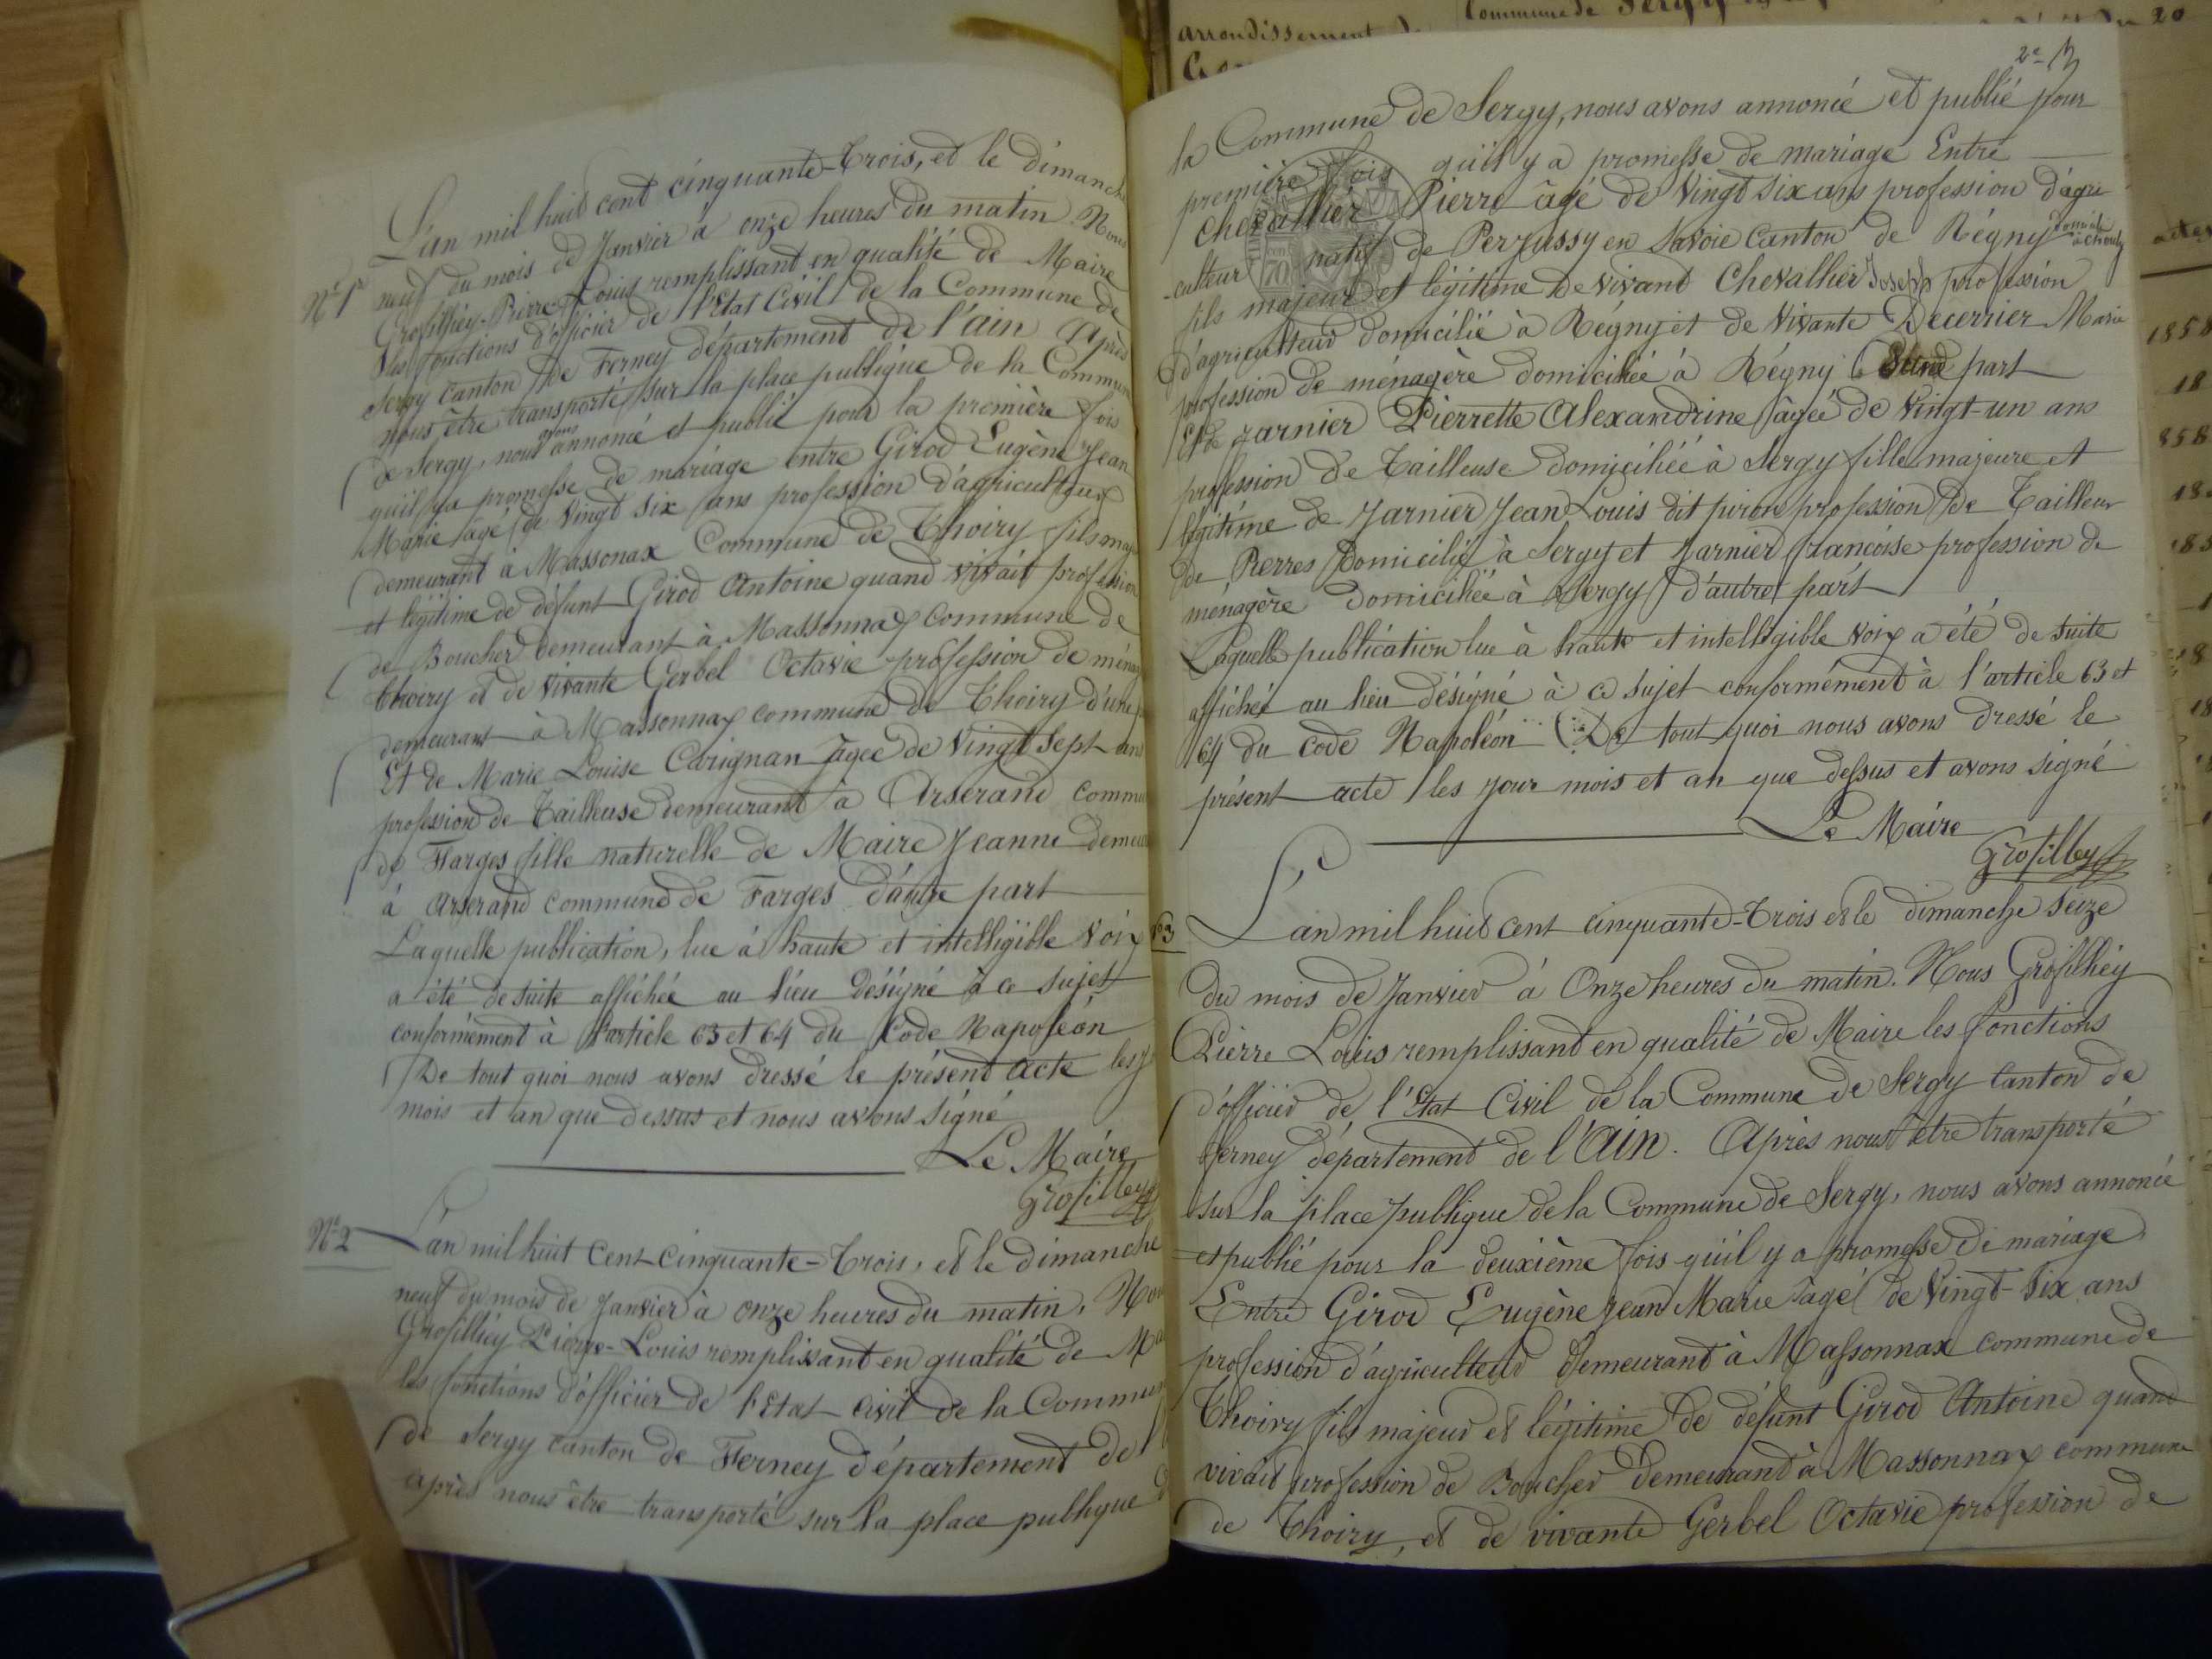 L'an mil huit cent cinquante-trois, et le dimanche
N° 1er neuf du mois de Janvier à onze heures du matin Nous
Grosfilley-Pierre-Louis remplissant en qualité de Maire
les fonctions d'officier de l'Etat Civil de la Commune de
Sergy Canton de Ferney département de l'ain Après
nous être transporté sur la place publique de la Commune
de Sergy, nous avons annoncé et publié pour la première fois
qu'il y a promesse de mariage entre Girod Eugène Jean
Marie agé de Vingt six ans profession d'agriculteur
demeurant à Massonax Commune de Thoiry fils maj
et légitime de défunt Girod Antoine quand vivait profession
de Boucher demeurant à Massonnax Commune de
Thoiry et de vivante Gerbel Octavie profession de ménag
demeurant à Massonnax commune de Thoiry d'une p
Et de Marie Louise Carignan agée de Vingt Sept ans
profession de Tailleuse demeurant à Arserand commu
de Farges fille naturelle de Maire Jeanne demeur
à Arserand commune de Farges d'autre part
Laquelle publication, lue à haute et intelligible voix
a été de suite affichée au lieu désigné à ce sujet
conformément à l'article 63 et 64 du Code Napoléon
De tout quoi nous avons dressé le présent acte les j
mois et an que dessus et nous avons signé
Le Maire
Grosfilley
N° 2 L'an mil huit cent cinquante-trois, et le dimanche
neuf du mois de Janvier à onze heures du matin, Nou
Grosfilley Pierre-Louis remplissant en qualité de Ma
les fonctions d'officier de l'Etat civil de la Commun
de Sergy canton de Ferney département de l
après nous être transporté sur la place publique d
arrondissement de
Commune de Sergy
20
2e
la Commune de Sergy, nous avons annoncé et publié pour
première fois qu'il y a promesse de mariage Entre
Chevallier Pierre âgé de Vingt six ans profession d'agri
-culteur natif de Perjussy en Savoie Canton de Régny domicilié à
fils majeur et légitime de vivant Chevallier Joseph profession
d'agriculteur domicilié à Régny et de vivante Decerrier Marie
profession de ménagère domiciliée à Régny d'une part
Et de Jarnier Pierrette Alexandrine âgée de Vingt-un ans
profession de Tailleuse domiciliée à Sergy fille majeure et
légitime de Jarnier Jean Louis dit piron profession de Tailleur
de Pierres domicilié à Sergy et Jarnier françoise profession de
ménagère domiciliée à Sergy d'autre part
Laquelle publication lue à haute et intelligible voix a été de suite
affichée au lieu désigné à ce sujet conformément à l'article 63 et
64 du code Napoléon De tout quoi nous avons dressé le
présent acte les jour mois et an que dessus et avons signé
Le Maire
Grosfilley
N° 3 L'an mil huit cent cinquante-trois et le dimanche seize
du mois de Janvier à Onze heures du matin. Nous Grosfilley
Pierre Louis remplissant en qualité de Maire les fonctions
d'officier de l'Etat Civil de la Commune de Sergy Canton de
Ferney département de l'Ain. Après nous être transporté
sur la place publique de la Commune de Sergy, nous avons annoncé
et publié pour la deuxième fois qu'il y a promesse de mariage
Entre Girod Eugène Jean Marie âgé de Vingt-Six ans
profession d'agriculteur demeurant à Massonnax commune de
Thoiry fils majeur et légitime de défunt Girod Antoine quand
vivait profession de Boucher demeurant à Massonnax commune
de Thoiry, et de vivante Gerbel Octavie profession de